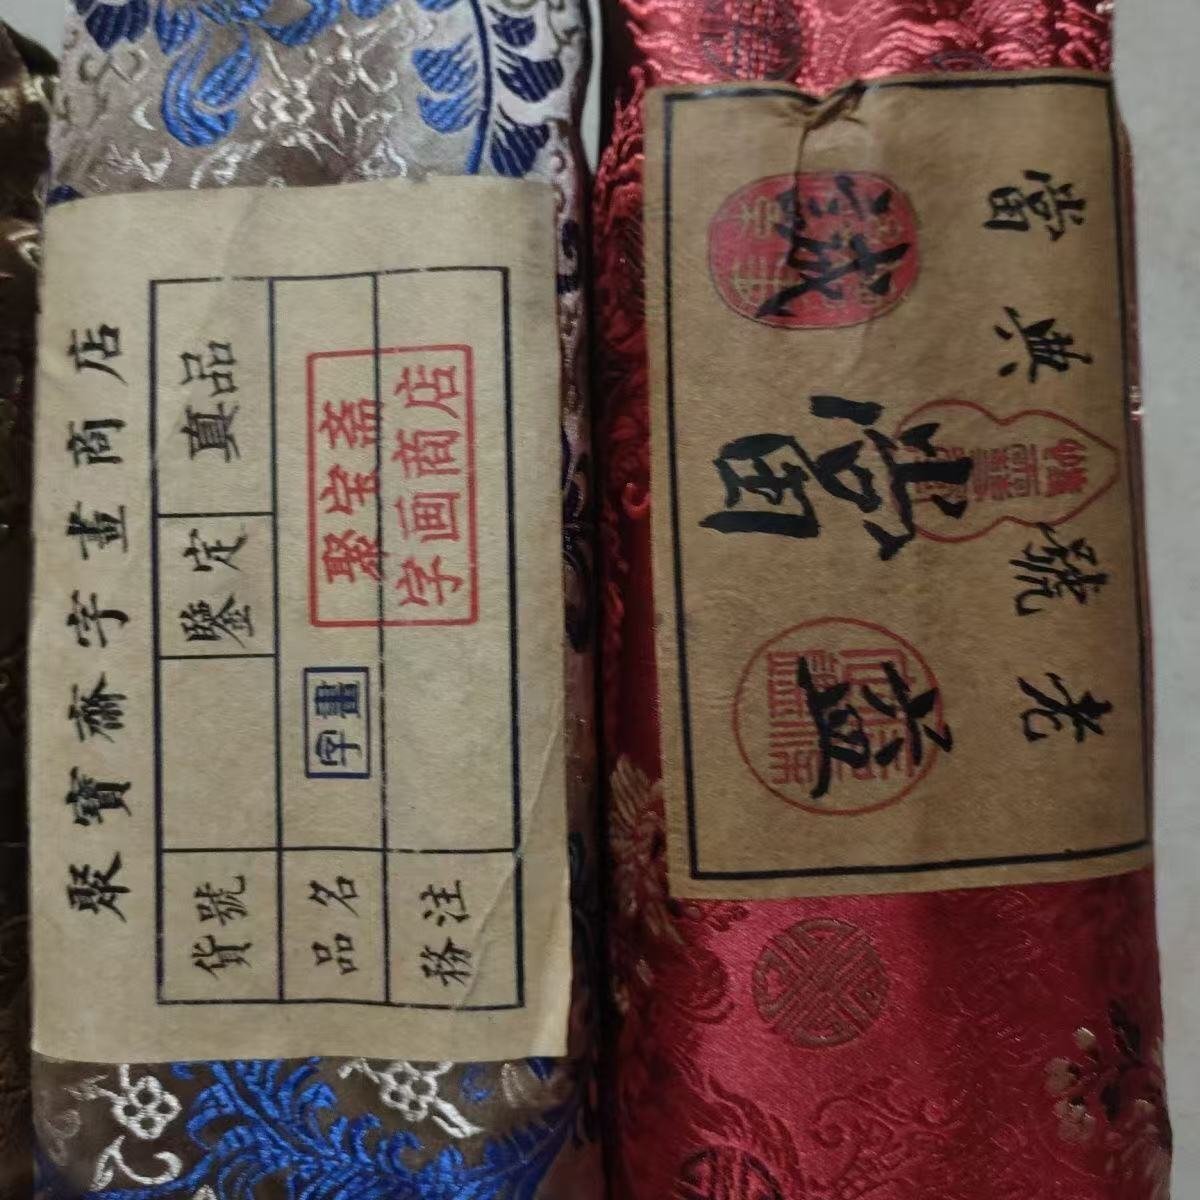 聚寶齋字畫商店
貨號 鑒定 真品
品名 字畫
聚宝斋
字画商店
務注
老號典當
盛
誠